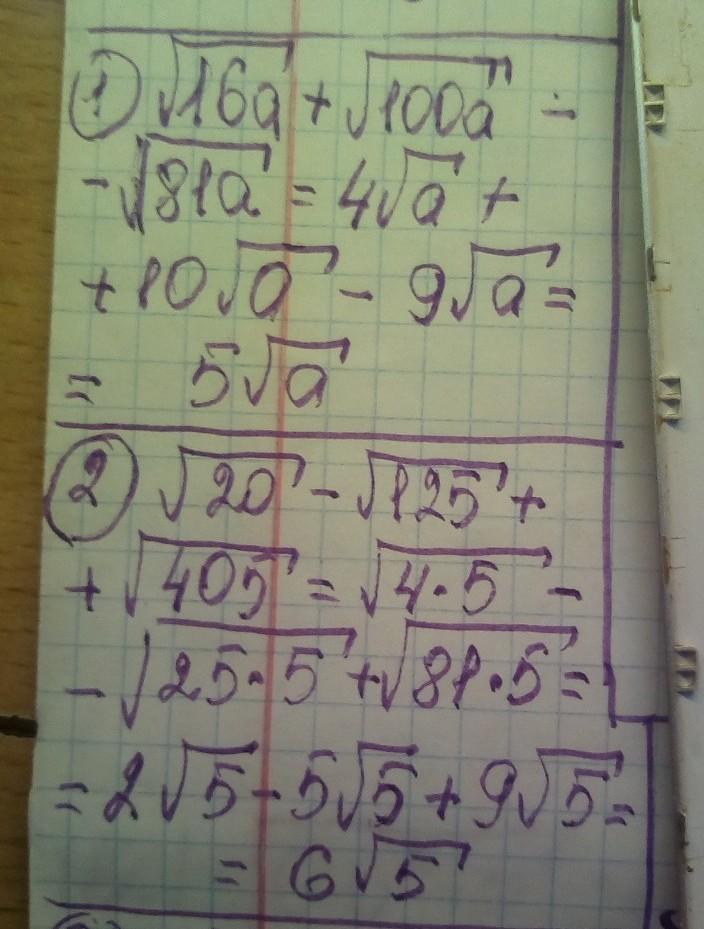 ① √16a + √100a −
− √81a = 4√a +
+ 10√a − 9√a =
= 5√a
② √20 − √125 +
+ √405 = √4·5 −
− √25·5 + √81·5 =
= 2√5 − 5√5 + 9√5 =
= 6√5